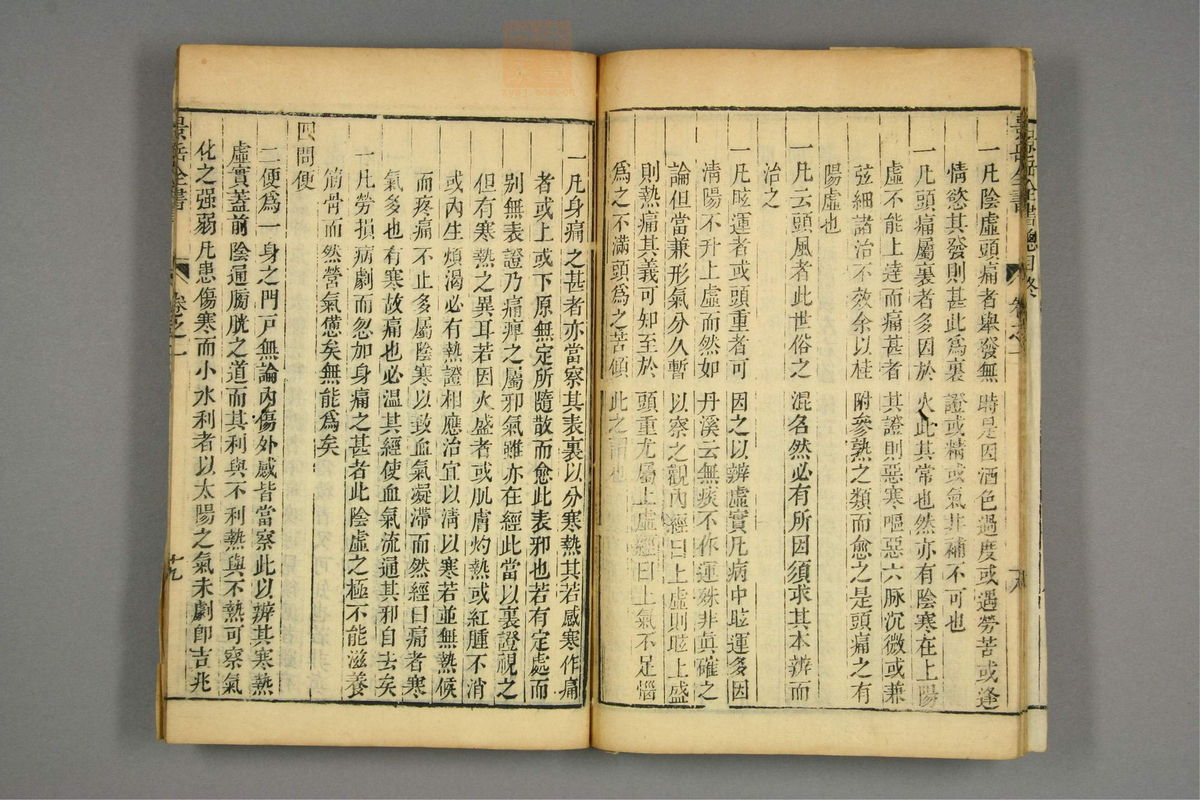 一凡陰虛頭痛者舉發無時是因酒色過度或遇勞苦或逢
情慾其發則甚此為裏證或精或氣非補不可也
一凡頭痛屬裏者多因於火此其常也然亦有陰寒在上陽
虛不能上達而痛甚者其證則惡寒嘔惡六脉沉微或兼
弦細諸治不效余以桂附參熟之類而愈之是頭痛之有
陽虛也
一凡云頭風者此世俗之混名然必有所因須求其本辨而
治之
一凡眩運者或頭重者可因之以辨虛實凡病中眩運多因
清陽不升上虛而然如丹溪云無痰不作運殊非真確之
論但當兼形氣分久暫以察之觀內經曰上虛則眩上盛
則熱痛其義可知至於頭重尤屬上虛經曰上氣不足腦
為之不滿頭為之苦傾此之謂也
一凡身痛之甚者亦當察其表裏以分寒熱其若感寒作痛
者或上或下原無定所隨散而愈此表邪也若有定處而
别無表證乃痛痺之屬邪氣雖亦在經此當以裏證視之
但有寒熱之異耳若因火盛者或肌膚灼熱或紅腫不消
或內生煩渴必有熱證相應治宜以清以寒若並無熱候
而疼痛不止多屬陰寒以致血氣凝滯而然經曰痛者寒
氣多也有寒故痛也必温其經使血氣流通其邪自去矣
一凡勞損病劇而忽加身痛之甚者此陰虛之極不能滋養
筋骨而然營氣憊矣無能為矣
四問便
二便為一身之門戶無論內傷外感皆當察此以辨其寒熱
虛實蓋前陰通膀胱之道而其利與不利熱與不熱可察氣
化之强弱凡患傷寒而小水利者以太陽之氣未劇即吉兆
景岳全書
卷之一
十九